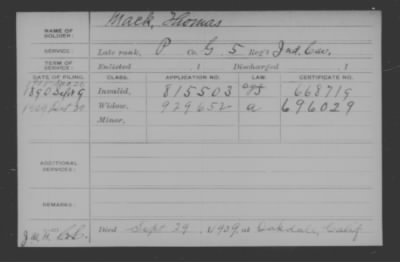 Mack, Thomas
NAME OF SOLDIER:
SERVICE: Late rank, P Co. G, 5 Reg't Ind. Cav.
TERM OF SERVICE: Enlisted , 1 Discharged , 1
DATE OF FILING. CLASS. APPLICATION NO. LAW. CERTIFICATE NO.
1890 Sept 9 Invalid, 815503 668719
1909 Widow, 929652 a 696029
Minor,
ADDITIONAL SERVICES:
REMARKS:
Died Sept 29, 1909, at Oakdale, Calif